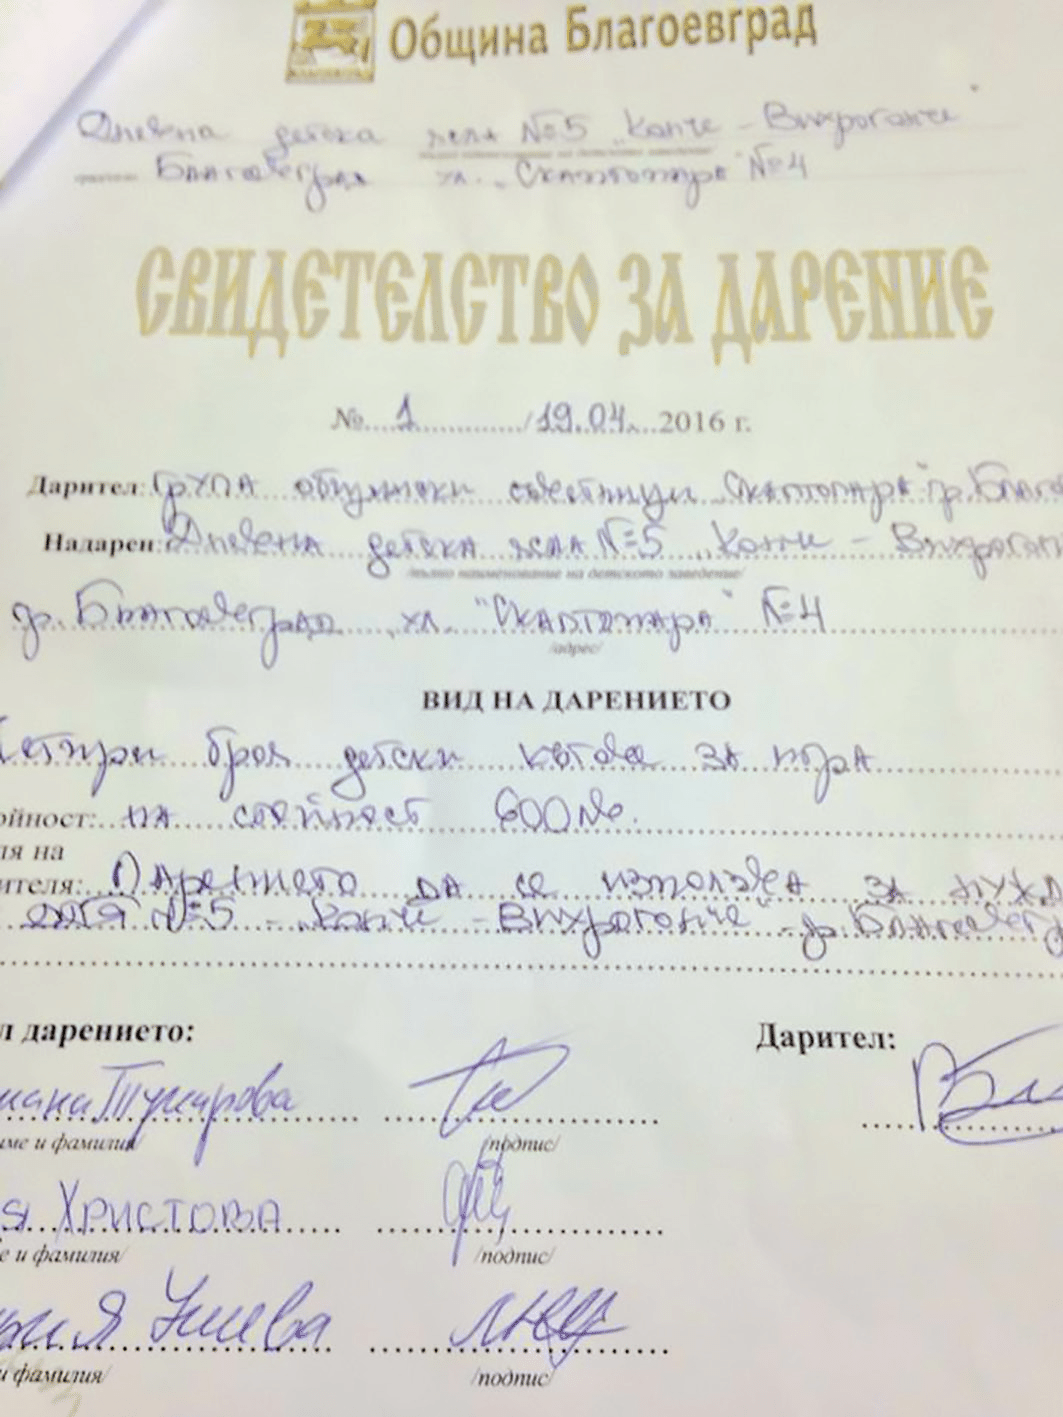 БЛАГОЕВГРАД
Община Благоевград
Дневна детска ясла №5 "Конче - Вихрогонче"
Благоевград ул. "Скаптопара" №4
СВИДЕТЕЛСТВО ЗА ДАРЕНИЕ
№ 1 / 19.04. 2016 г.
Дарител: Група общински съветници "Скаптопара" гр. Благо
Надарен: Дневна детска ясла №5 "Конче - Вихрогон
/пълно наименование на детското заведение/
гр. Благоевград ул. "Скаптопара" №4
/адрес/
ВИД НА ДАРЕНИЕТО
Четири броя детски кътове за игра
ойност: на стойност 600 лв.
ля на
ителя: Дарението да се използва за нужд
№5 - "Конче - Вихрогонче" - гр. Благоевгр
л дарението: Дарител:
Тумарова
име и фамилия/ /подпис/
я Христова
е и фамилия/ /подпис/
Ушева
и фамилия/ /подпис/